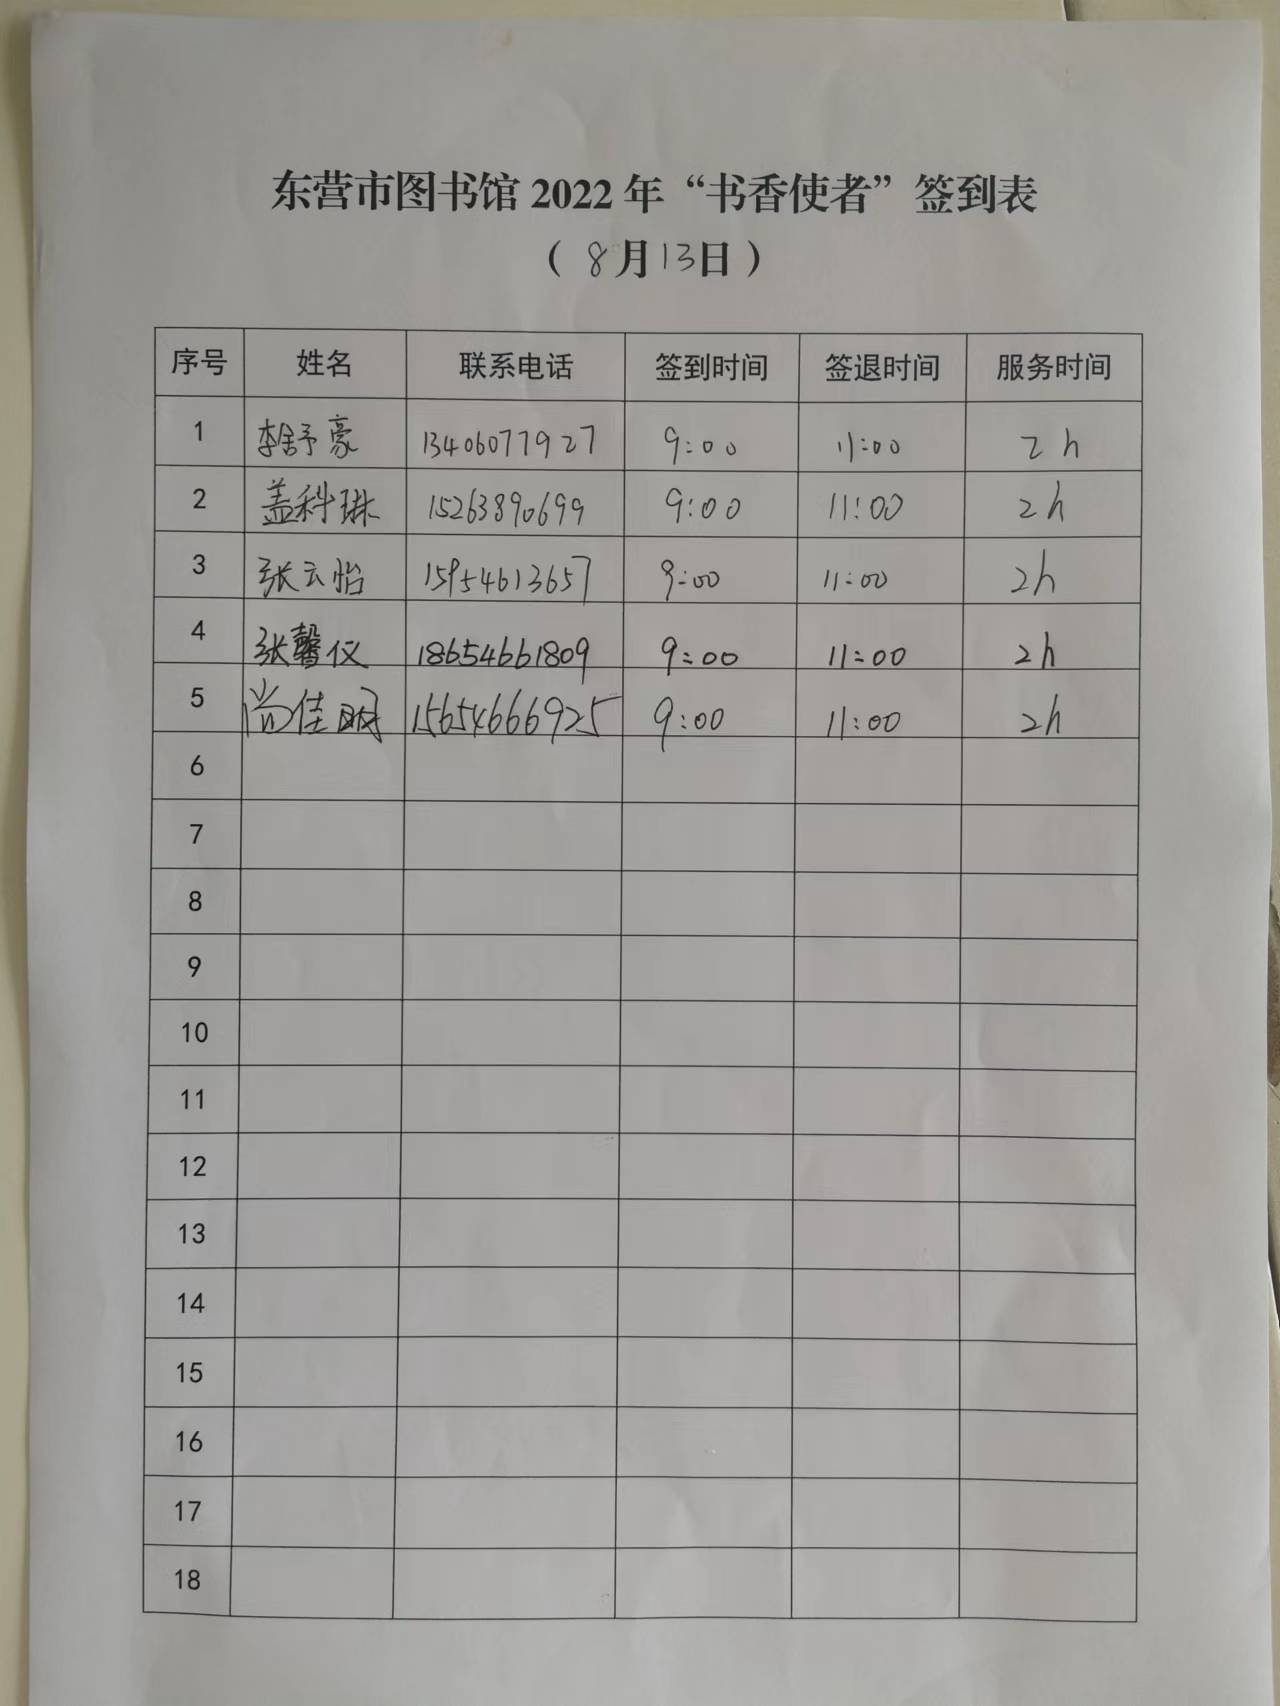 东营市图书馆 2022 年“书香使者”签到表
（ 8月13日 ）
序号 姓名 联系电话 签到时间 签退时间 服务时间
1 李舒豪 13406077927 9:00 11:00 2h
2 盖科琳 15263890699 9:00 11:00 2h
3 张云怡 15954613657 9:00 11:00 2h
4 张馨仪 18654661809 9:00 11:00 2h
5 尚佳明 15654666925 9:00 11:00 2h
6
7
8
9
10
11
12
13
14
15
16
17
18